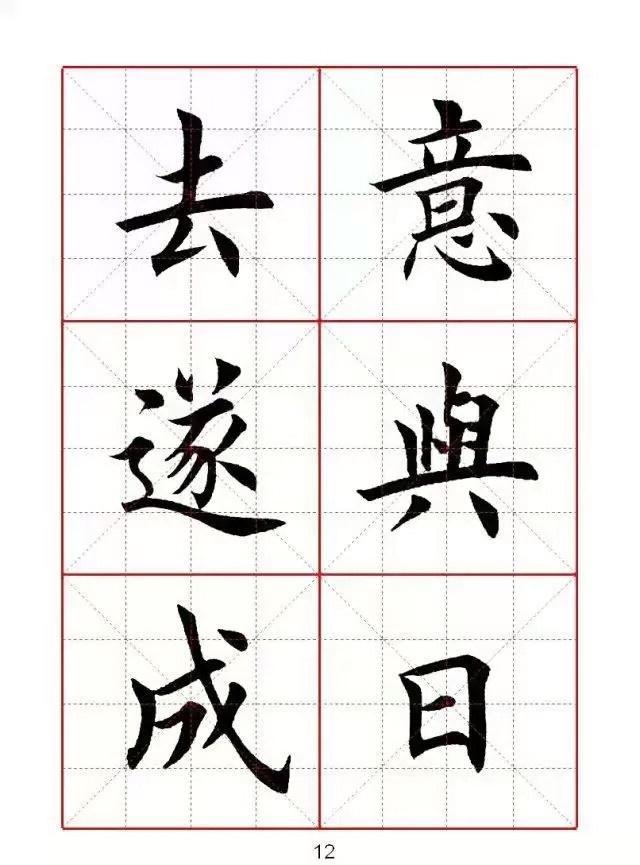 意與日
去遂成
12